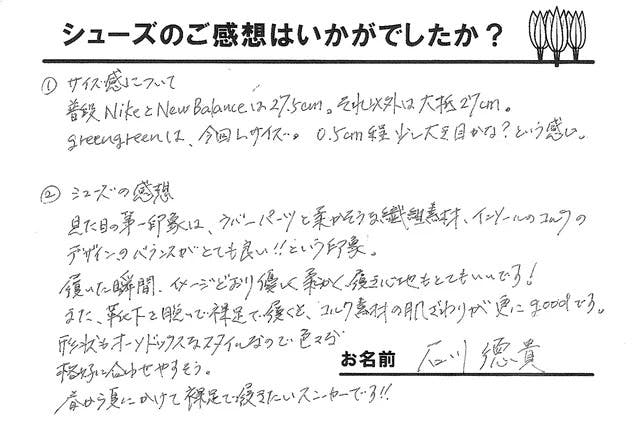 シューズのご感想はいかがでしたか？
① サイズ感について
普段NikeとNewBalanceは27.5cm。それ以外は大抵27cm。
greengreenは、今回Lサイズ。0.5cm程少し大き目かな？という感じ。
② シューズの感想
見た目の第一印象は、ラバーパーツと柔かそうな繊維素材、インソールのコルクの
デザインのバランスがとても良い!!という印象。
履いた瞬間、イメージどおり優しく柔かく、履き心地もとてもいいです！
また、靴下を脱いで裸足で履くと、コルク素材の肌ざわりが更にgoodです。
形状もオーソドックスなスタイルなので色々な
格好に合わせやすそう。
春から夏にかけて裸足で履きたいスニーカーです!!
お名前 石川 徳貴